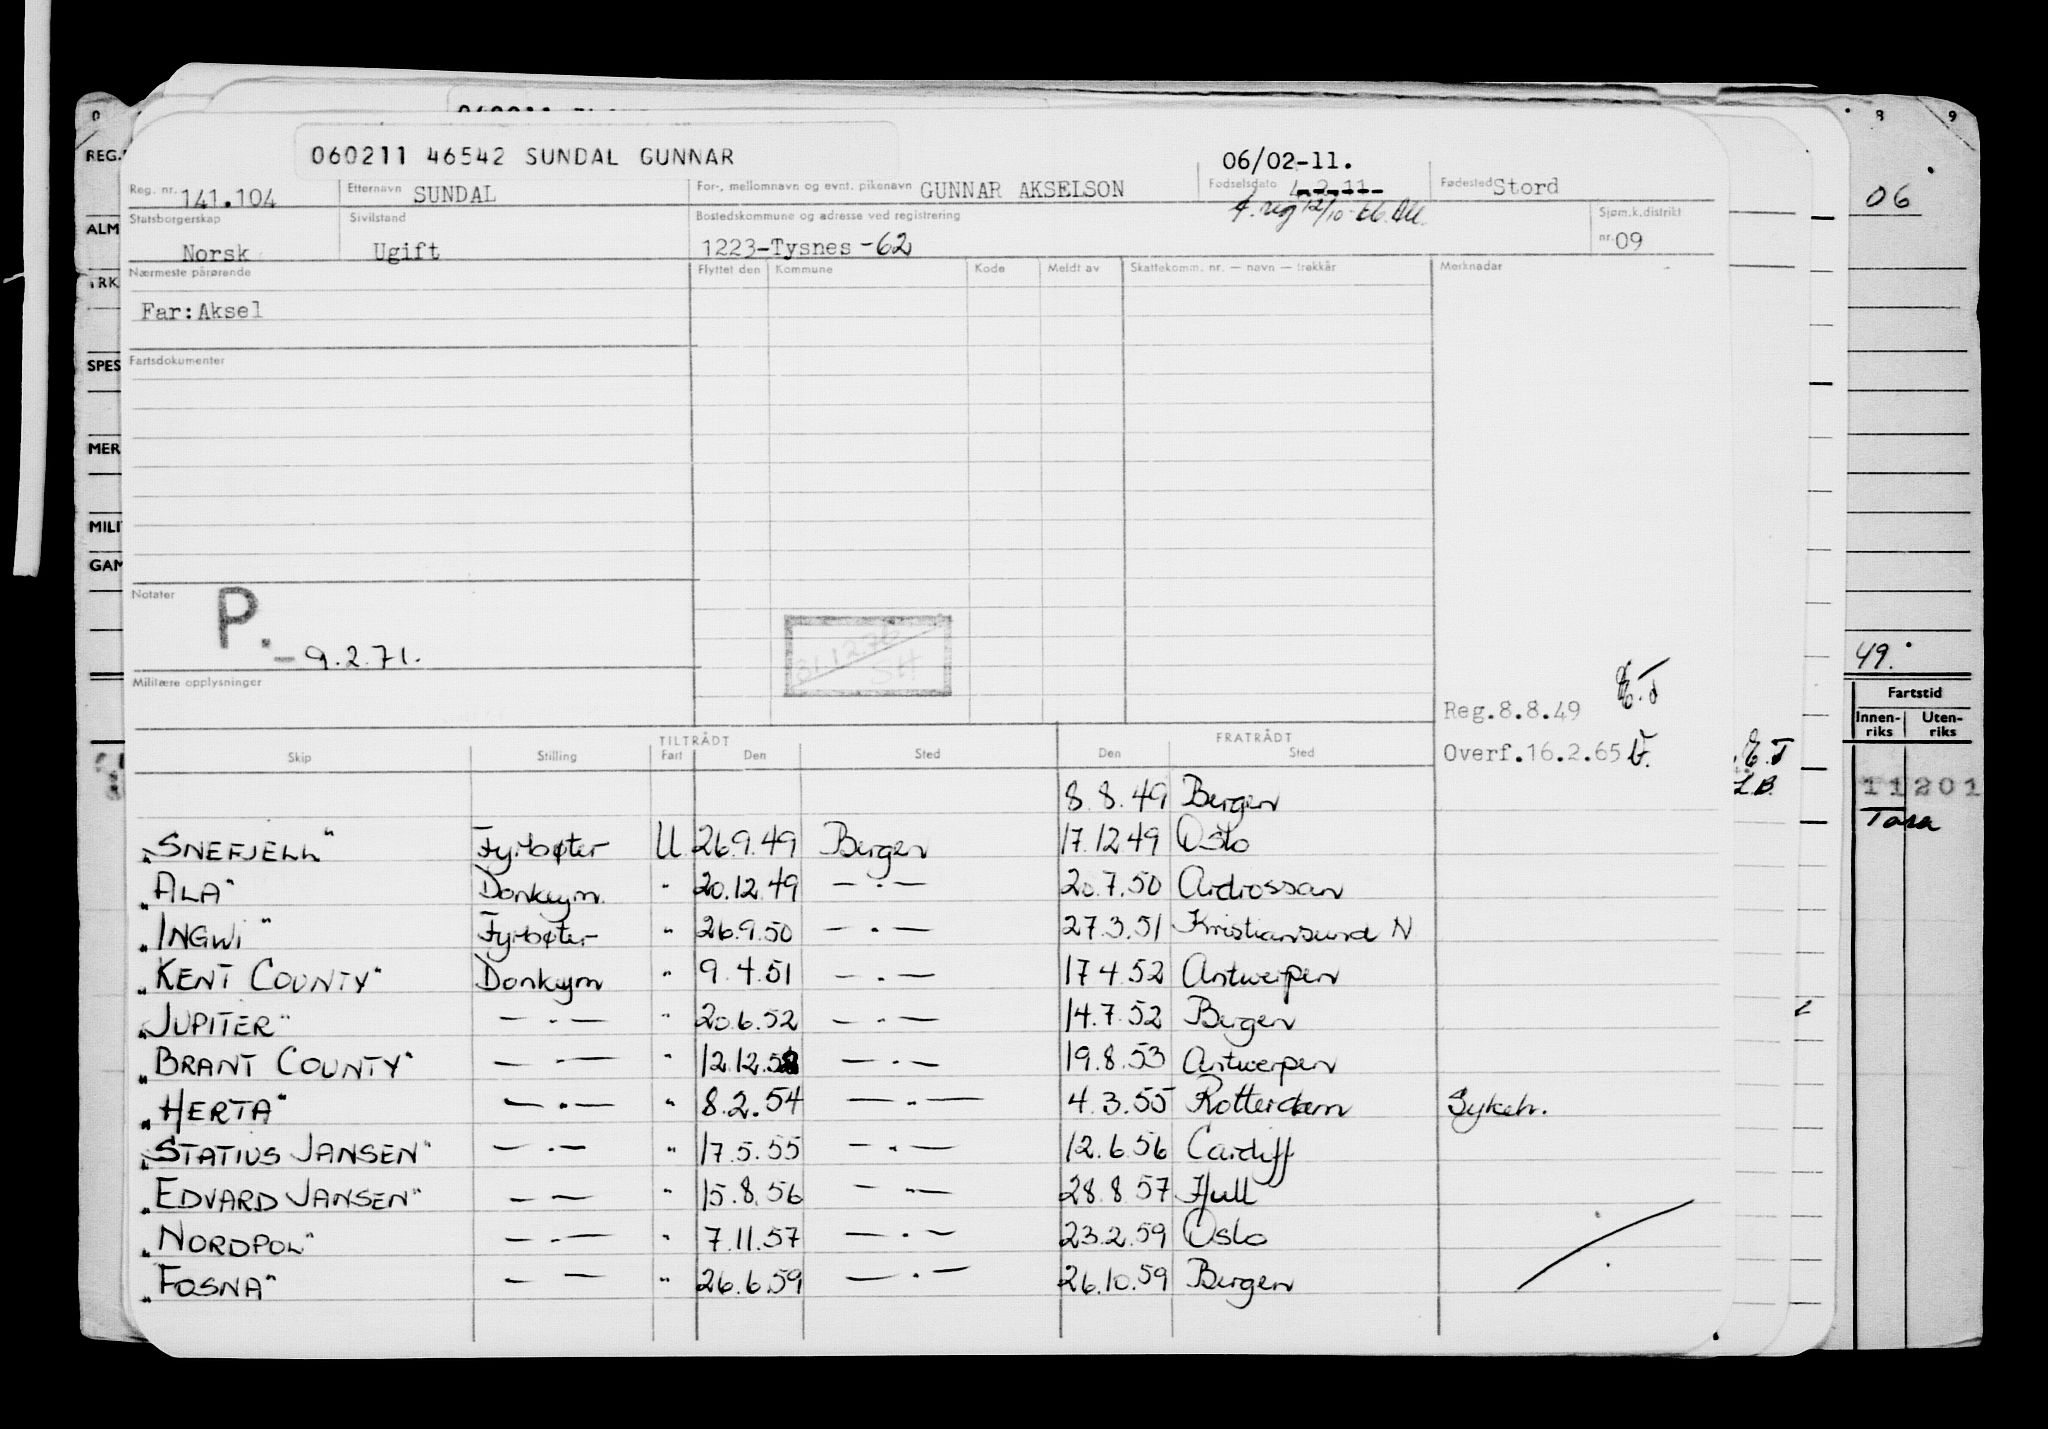 060211 46542 SUNDAL GUNNAR 06/02-11.
Reg. nr. 141.104 Etternavn SUNDAL For-, mellomnavn og evnt. pikenavn GUNNAR AKSELSON Fødselsdato Fødested Stord
f. reg 12/10-66.
Statsborgerskap Norsk Sivilstand Ugift Bostedskommune og adresse ved registrering 1223-Tysnes -62 Sjøm.k.distrikt nr. 09
Nærmeste pårørende Flyttet den Kommune Kode Meldt av Skattekomm. nr. — navn — trekkår Merknader
Far: Aksel
Fartsdokumenter
Notater P.
- 9.2.71.
31.12.76
54
Militære opplysninger
Reg.8.8.49 E.T
Overf.16.2.65
TILTRÅDT FRATRÅDT
Skip Stilling Fart Den Sted Den Sted
8.8.49 Bergen
„SNEFJELL" Fyrbøter U 26.9.49 Bergen 17.12.49 Oslo
„ALA" Donkeym. " 20.12.49 — . — 20.7.50 Ardrossan
„INGWI" Fyrbøter " 26.9.50 — . — 27.3.51 Kristiansund N
„KENT COUNTY" Donkeym " 9.4.51 — . — 17.4.52 Antwerpen
„JUPITER" — . — " 20.6.52 — . — 14.7.52 Bergen
„BRANT COUNTY" — . — " 12.12.52 — . — 19.8.53 Antwerpen
„HERTA" — . — " 8.2.54 — . — 4.3.55 Rotterdam Sykeh.
„STATIUS JANSEN" — . — " 17.5.55 — . — 12.6.56 Cardiff
„EDVARD JANSEN" — — " 15.8.56 — . — 28.8.57 Hull
„NORDPOL" — . — " 7.11.57 — . — 23.2.59 Oslo
„FOSNA" — — " 26.6.59 — . — 26.10.59 Bergen
0
REG.
ALM
TRK
SPES
MER
MILI
GAM
8 9
06
49.
Fartstid
Innen-riks Uten-riks
E.T
L.B.
11201
Tara